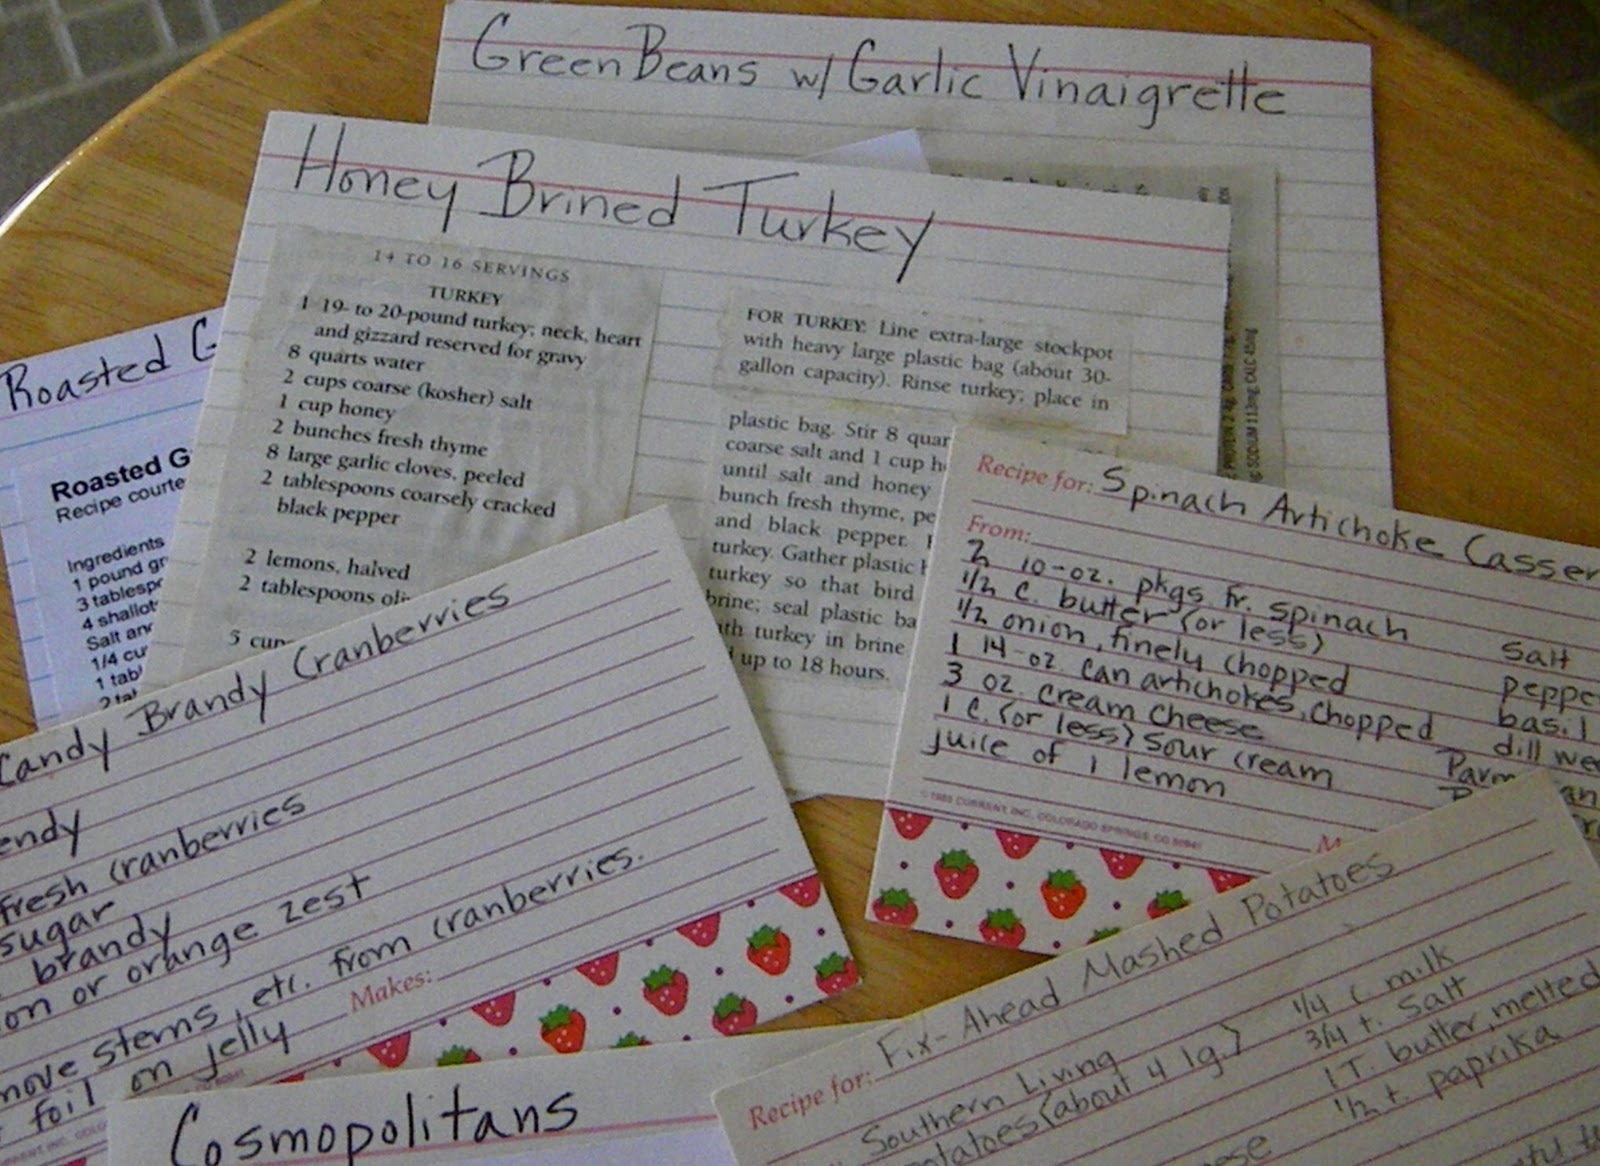 Green Beans w/ Garlic Vinaigrette
SODIUM 113mg CALC 45mg
Honey Brined Turkey
14 TO 16 SERVINGS
TURKEY
1 19- to 20-pound turkey; neck, heart
and gizzard reserved for gravy
8 quarts water
2 cups coarse (kosher) salt
1 cup honey
2 bunches fresh thyme
8 large garlic cloves, peeled
2 tablespoons coarsely cracked
black pepper
2 lemons, halved
2 tablespoons
5
FOR TURKEY: Line extra-large stockpot
with heavy large plastic bag (about 30-
gallon capacity). Rinse turkey; place in
plastic bag. Stir 8 quar
coarse salt and 1 cup h
until salt and honey
bunch fresh thyme, pe
and black pepper.
turkey. Gather plastic
turkey so that bird
brine; seal plastic ba
with turkey in brine
up to 18 hours.
Roasted G
Roasted G
Recipe courte
Ingredients
1 pound gr
3 tablespo
4 shallot
Salt an
1/4 cu
1 tabl
2 tab
Recipe for: Spinach Artichoke Casser
From:
2 10-oz. pkgs. fr. spinach
1/2 c. butter (or less)
1/2 onion, finely chopped
1 14-oz. can artichokes, chopped
3 oz. cream cheese
1 c. (or less) sour cream
juice of 1 lemon
salt
peppe
basil
dill wee
Parm an
© 1989 CURRENT, INC., COLORADO SPRINGS, CO 80941
M
Candy Brandy Cranberries
endy
fresh cranberries
sugar
brandy
on or orange zest
move stems, etc. from cranberries.
foil on jelly
Makes:
Cosmopolitans
Recipe for: Fix-Ahead Mashed Potatoes
Southern Living
potatoes (about 4 lg.)
1/4 c milk
3/4 t. salt
1 T. butter, melted
1/2 t. paprika